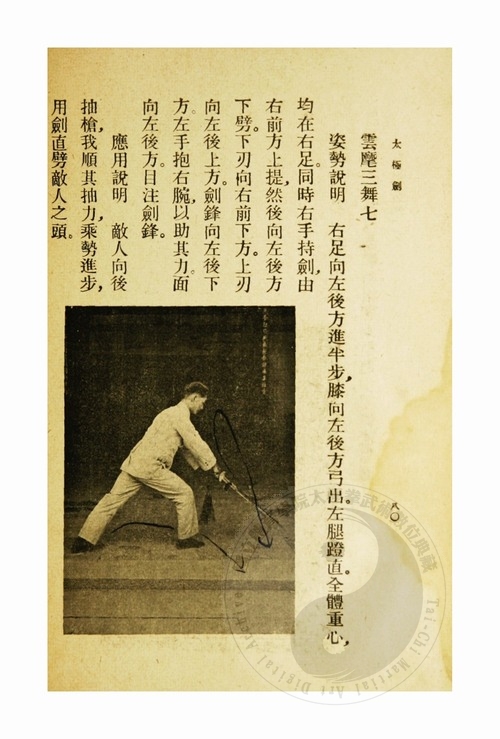 太極劍
雲麾三舞七
姿勢說明　右足向左後方進半步，膝向左後方弓出。左腿蹬直。全體重心，
均在右足。同時右手持劍，由
右前方上提，然後向左後方
下劈。下刃向右前下方。上刃
向左後上方。劍鋒向左後下
方。左手抱右腕，以助其力。面
向左後方。目注劍鋒。
應用說明　敵人向後
抽槍，我順其抽力，乘勢進步，
用劍直劈敵人之頭。
八〇
Tai-Chi Martial Art Digital